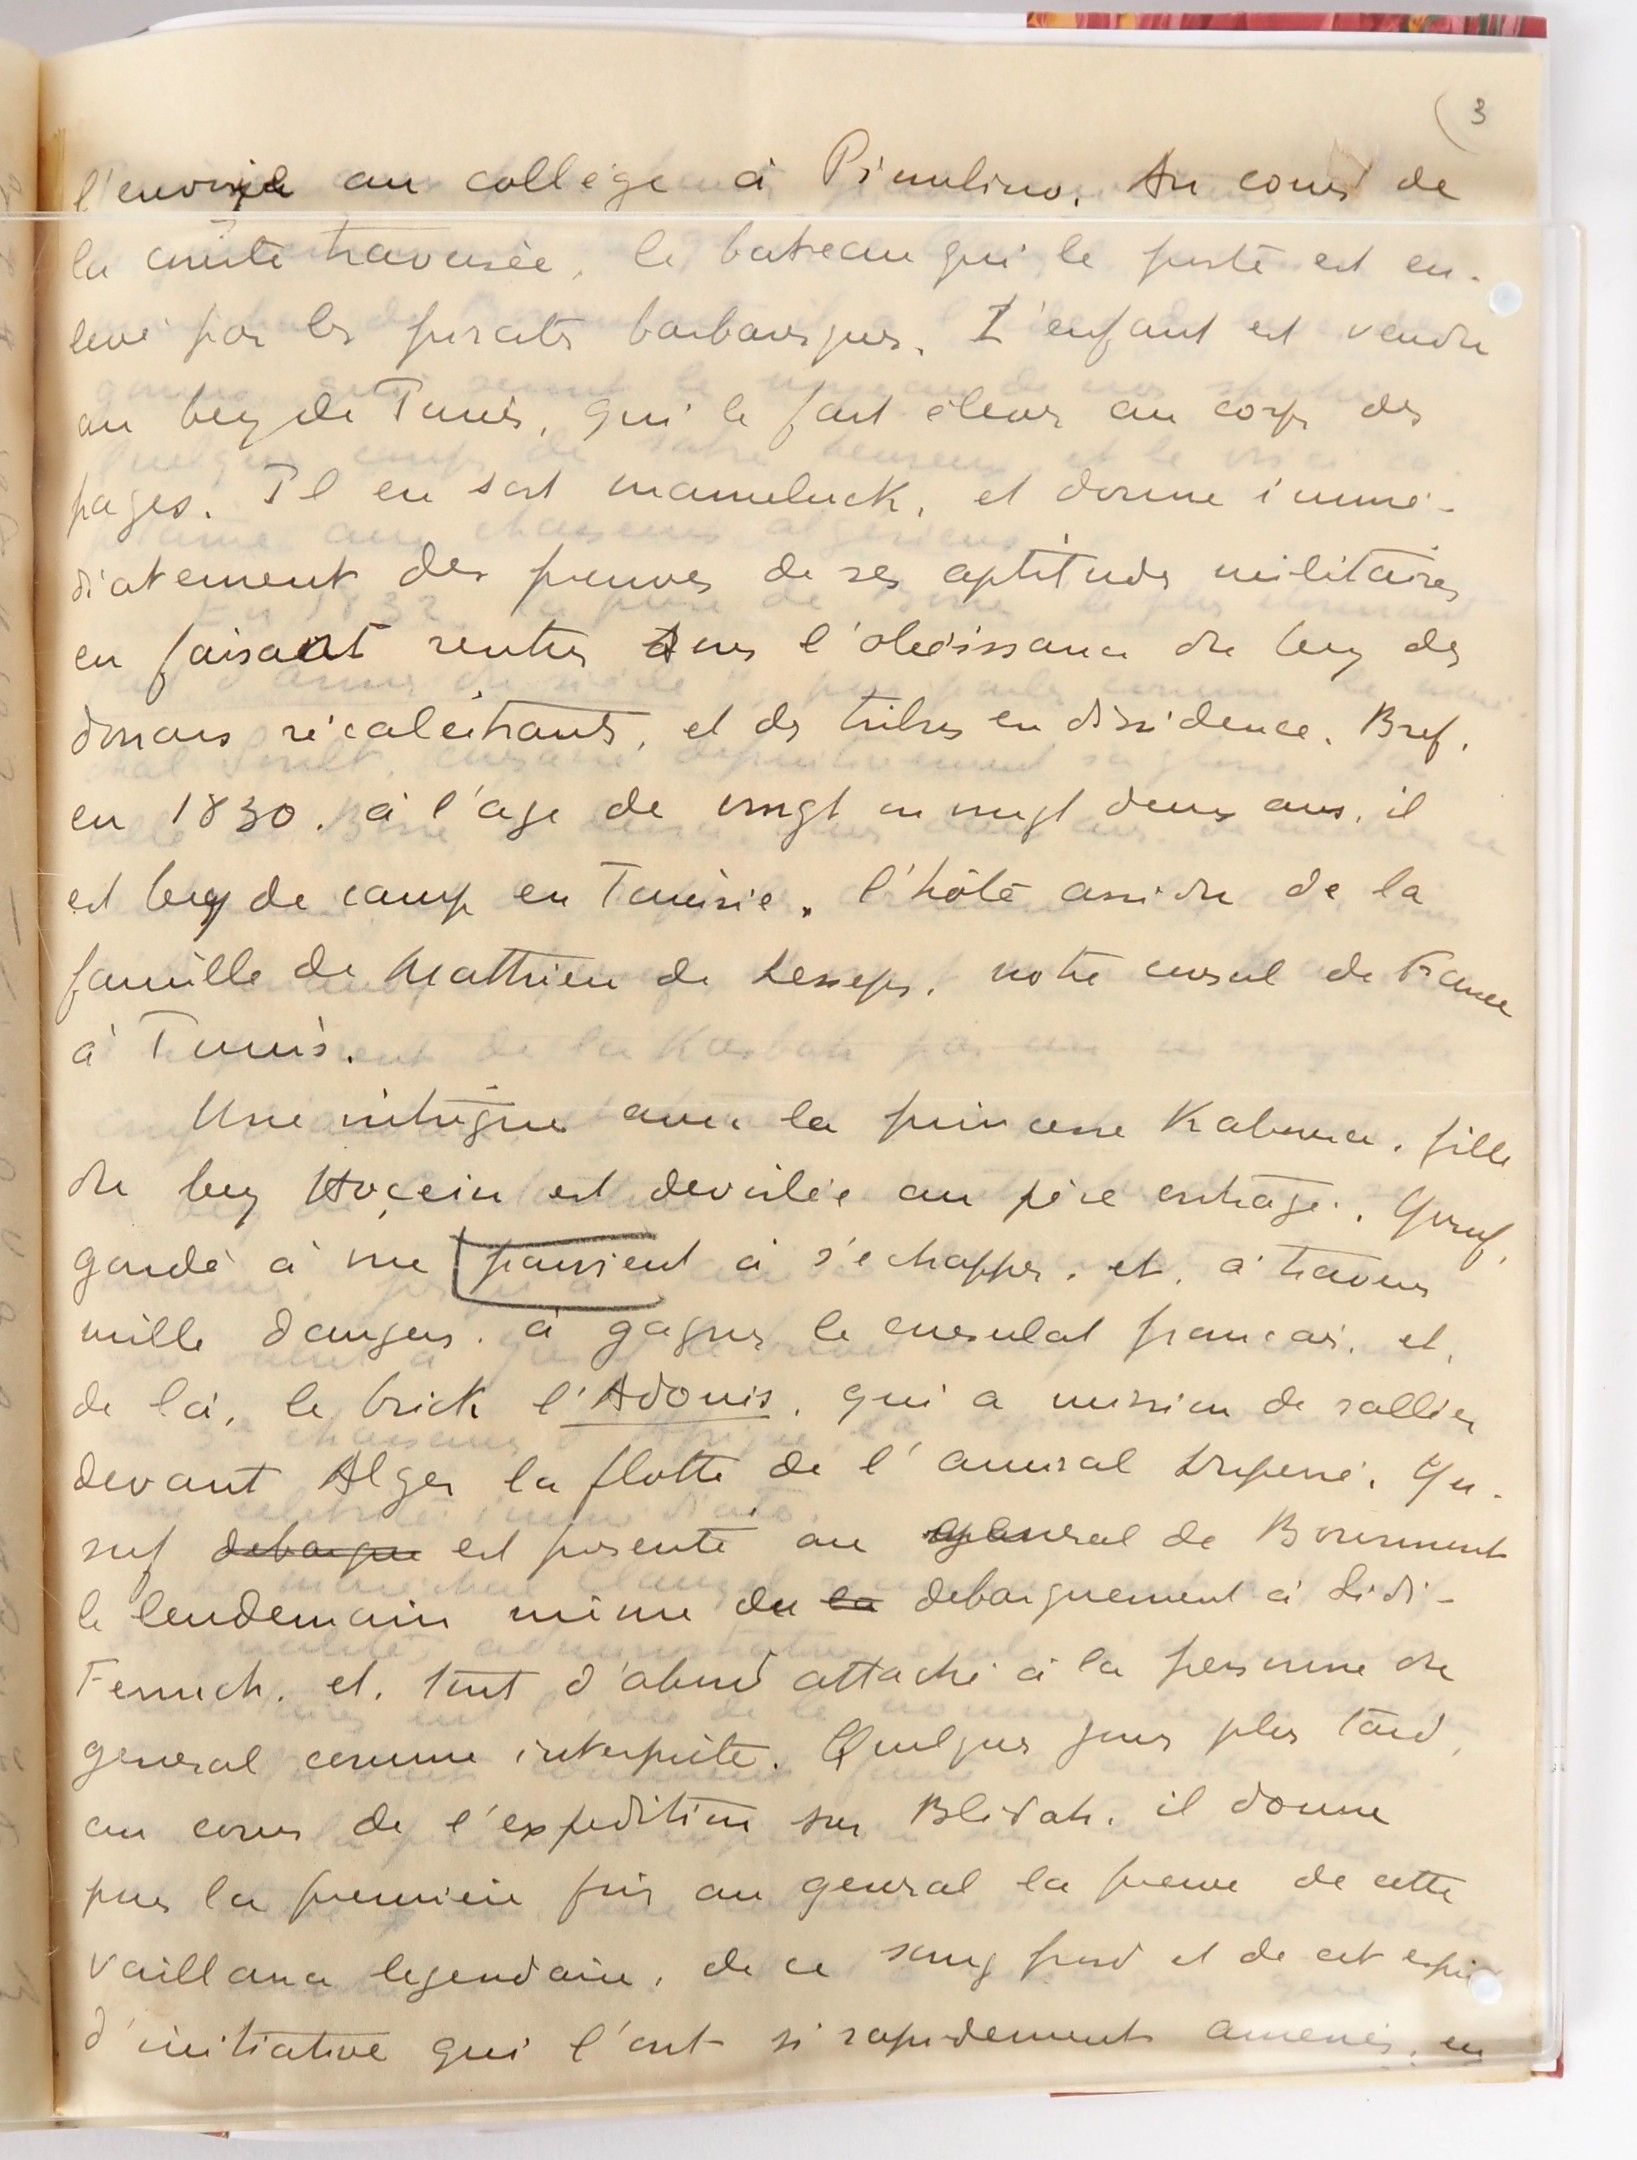 3
l'envoie au collège à Piombino. Au cours de
la courte traversée, le bateau qui le porte est en-
levé par les pirates barbaresques. L'enfant est vendu
au bey de Tunis, qui le fait élever au corps des
pages. Il en sort mameluck, et donne immé-
diatement des preuves de ses aptitudes militaires
en faisant rentrer dans l'obéissance du bey des
douars récalcitrants, et des tribus en dissidence. Bref,
en 1830, à l'age de vingt ou vingt deux ans, il
est bey de camp en Tunisie, l'hôte assidu de la
famille de Mathieu de Lesseps, notre consul de France
à Tunis.
Une intrigue avec la princesse Kaboura, fille
du bey Hoçein est dévoilée au père outragé. Yousuf,
gardé à vue parvient à s'echapper, et, à travers
mille dangers, à gagner le consulat francais, et,
de là, le brick l'Adonis, qui a mission de rallier
devant Alger la flotte de l'amiral Duperré. Yu-
suf debarque est présenté au general de Bourmont
le lendemain même du la debarquement à Sidi-
Ferruch, et, tout d'abord attaché à la personne du
general comme interprète. Quelques jours plus tard,
au cours de l'expedition sur Blidah, il donne
pour la première fois au general la preuve de cette
vaillance legendaire, de ce sang froid et de cet esprit
d'initiative qui l'ont si rapidement amené, en